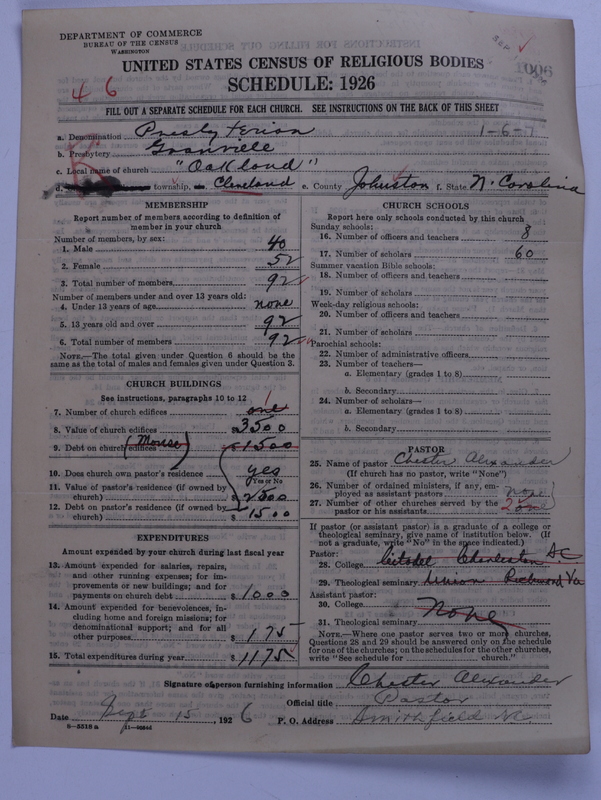 DEPARTMENT OF COMMERCE
BUREAU OF THE CENSUS
WASHINGTON
UNITED STATES CENSUS OF RELIGIOUS BODIES
SCHEDULE: 1926
4 6
1006
FILL OUT A SEPARATE SCHEDULE FOR EACH CHURCH. SEE INSTRUCTIONS ON THE BACK OF THIS SHEET
a. Denomination Presbyterian 1-6-7
b. Presbytery Granville
c. Local name of church "Oakland"
d. township, Cleveland e. County Johnston f. State N. Carolina
MEMBERSHIP
Report number of members according to definition of member in your church
Number of members, by sex:
1. Male 40
2. Female 52
3. Total number of members 92
Number of members under and over 13 years old:
4. Under 13 years of age none
5. 13 years old and over 92
6. Total number of members 92
NOTE.—The total given under Question 6 should be the same as the total of males and females given under Question 3.
CHURCH BUILDINGS
See instructions, paragraphs 10 to 12
7. Number of church edifices one 1
8. Value of church edifices $3500
9. Debt on church edifices (Manse) $1500
10. Does church own pastor's residence yes
Yes or No
11. Value of pastor's residence (if owned by church) $2500
12. Debt on pastor's residence (if owned by church) $1500
EXPENDITURES
Amount expended by your church during last fiscal year
13. Amount expended for salaries, repairs, and other running expenses; for improvements or new buildings; and for payments on church debt $1000
14. Amount expended for benevolences, including home and foreign missions; for denominational support; and for all other purposes $175
15. Total expenditures during year $1175
CHURCH SCHOOLS
Report here only schools conducted by this church
Sunday schools:
16. Number of officers and teachers 8
17. Number of scholars 60
Summer vacation Bible schools:
18. Number of officers and teachers
19. Number of scholars
Week-day religious schools:
20. Number of officers and teachers
21. Number of scholars
Parochial schools:
22. Number of administrative officers
23. Number of teachers—
a. Elementary (grades 1 to 8)
b. Secondary
24. Number of scholars—
a. Elementary (grades 1 to 8)
b. Secondary
PASTOR
25. Name of pastor Chester Alexander
(If church has no pastor, write "None")
26. Number of ordained ministers, if any, employed as assistant pastors none
27. Number of other churches served by the pastor or his assistants 2
If pastor (or assistant pastor) is a graduate of a college or theological seminary, give name of institution below. (If not a graduate, write "No" in the space indicated.)
Pastor:
28. College Citadel Charleston S.C
29. Theological seminary Union Richmond Va
Assistant pastor:
30. College
31. Theological seminary None
NOTE.—Where one pastor serves two or more churches, Questions 28 and 29 should be answered only on the schedule for one of the churches; on the schedules for the other churches, write "See schedule for church."
Signature of person furnishing information Chester Alexander
Official title Pastor
Date Sept 15, 1926 P. O. Address Smithfield NC.
8-5518 a